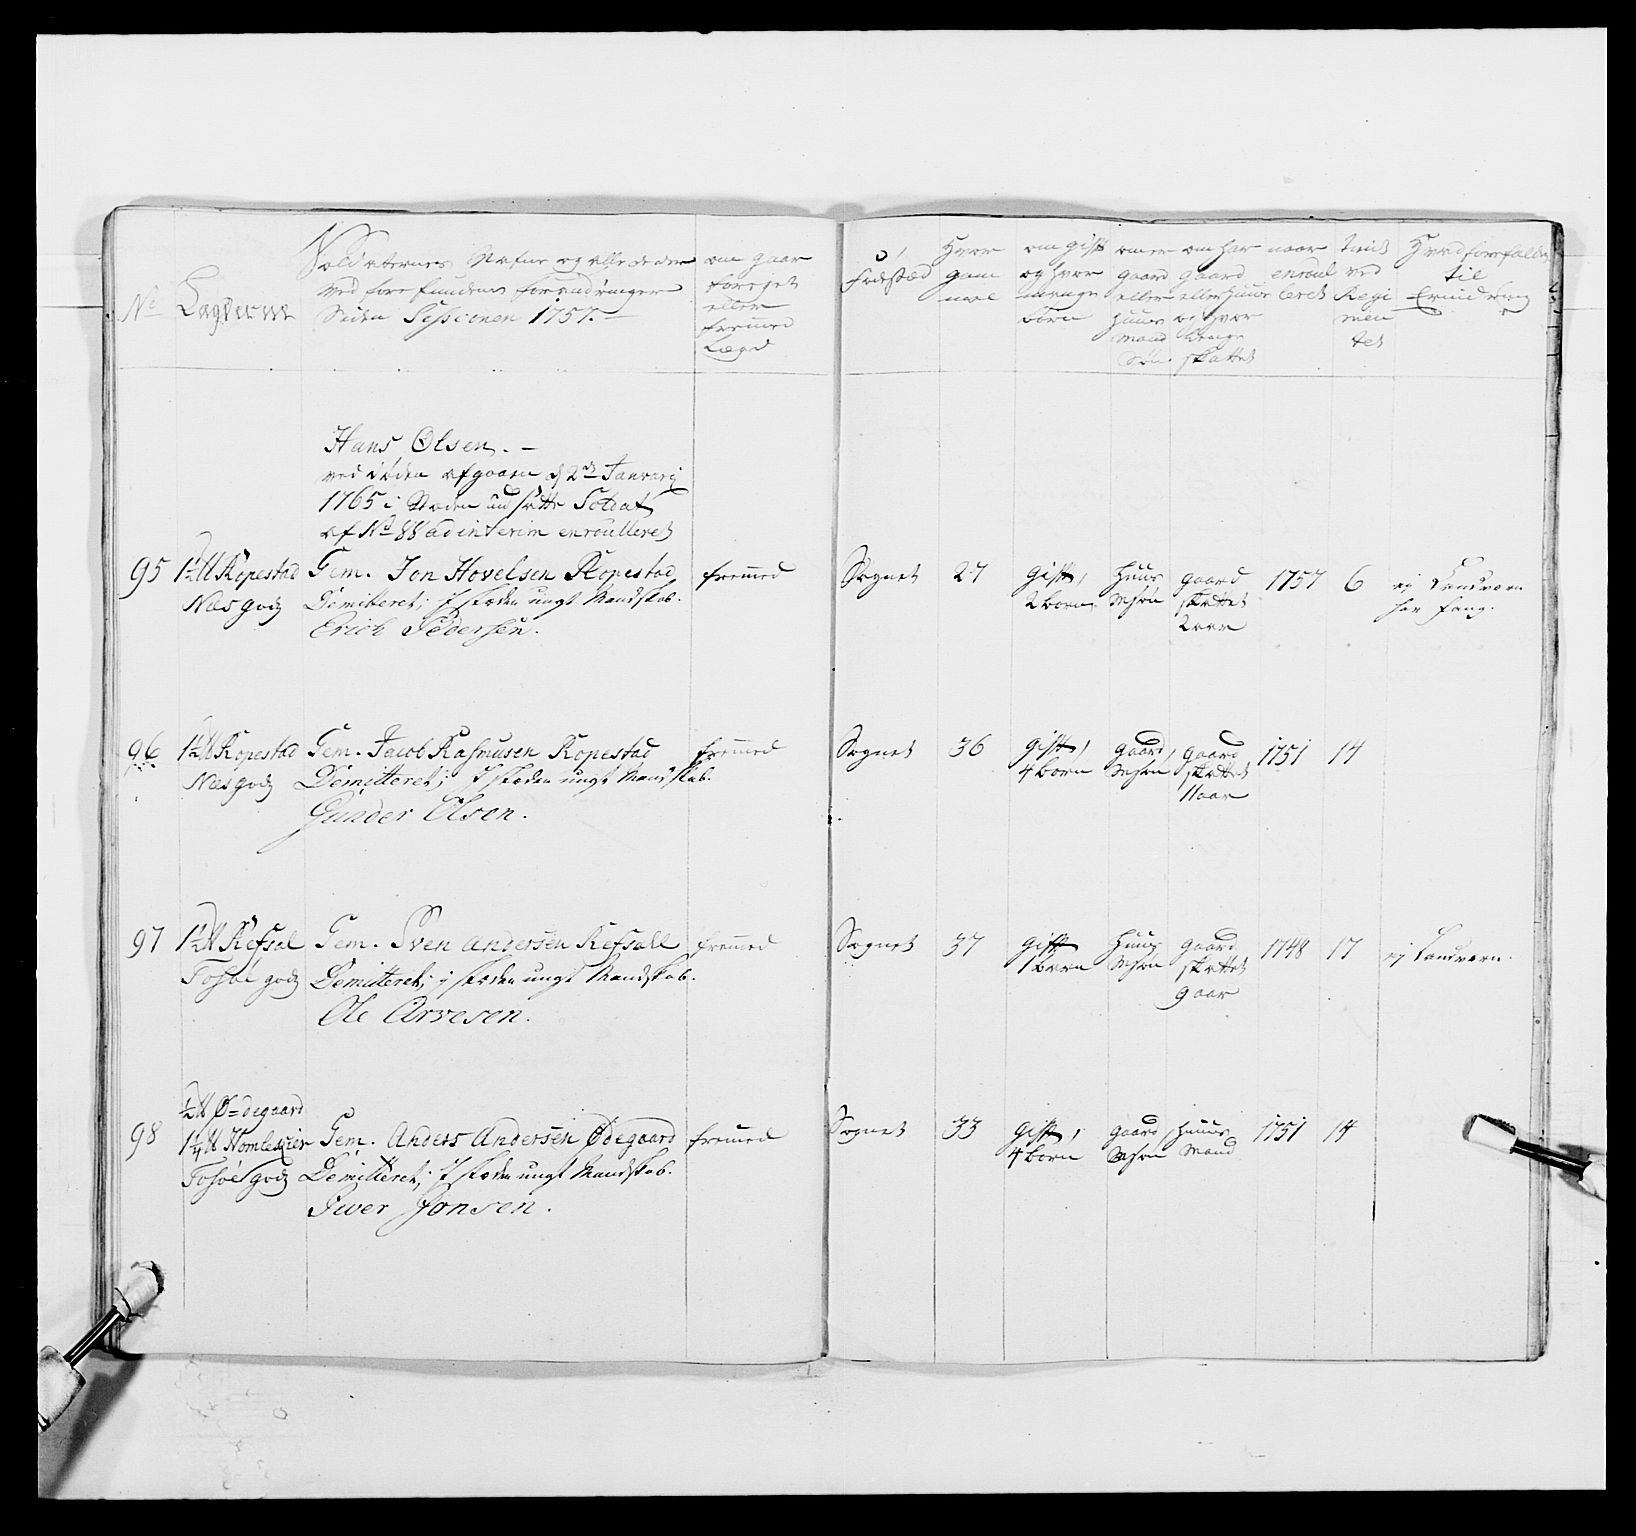 No
Lægderne
Soldaternes Nafne og alle de der
ved forefundene forandringer
Siden Sessionen 1757.
om gaar
for eget
eller
fremed
Lægd
Fødestæd
Hvor
gam
mel
om gift
og hvor
mange
børn
om er
gaard
eller
huus
mand
Søn
om har
gaard
eller huus
og hvor
lenge
skattet
naar
enroul
leret
tient
ved
Regi
men
tet
Hvad forefalder
til
Erindring
Hans Olsen. -
ved døden afgaaen d 2de Januarij
1765 i Steden udsatte Soldat
af No 88 ad interim enroulleret
95
1½ H Ropestad
Næs godz
Gem. Jon Hovelsen Ropestad
Demitteret; I stæden ungt Mandskab.
Erich Pedersen.
fremed
Sognet
27
gift,
2 børn
Huus
M søn
gaard
skattet
2 aar
1757
6
ej Landværn
har fang.
96
1½ H Ropestad
Næs godz
Gem. Jacob Rasmusen Ropestad
Demitteret; I stæden ungt Mandskab.
Gunder Olsen.
fremed
Sognet
36
gift,
4 børn
gaard
M søn
gaard
skattet
11 aar
1751
14
97
1½ H Refsal
Fosøe godz
Gem. Sven Andersen Refsall
Demitteret; i stæden ungt Mandskab.
Ole Arvesen.
fremed
Sognet
37
gift
1 barn
Huus
M søn
gaard
skattet
9 aar
1748
17
ej Landværn.
98
½ H Ødegaard
1¼ H Homleqier
Fosøe godz
Gem. Anders Andersen Ødegaard
Demitteret; I stæden ungt Mandskab.
Iver Jonsen.
fremed
Sognet
33
gift,
4 børn
gaard
M søn
Huus
Mand
1751
14